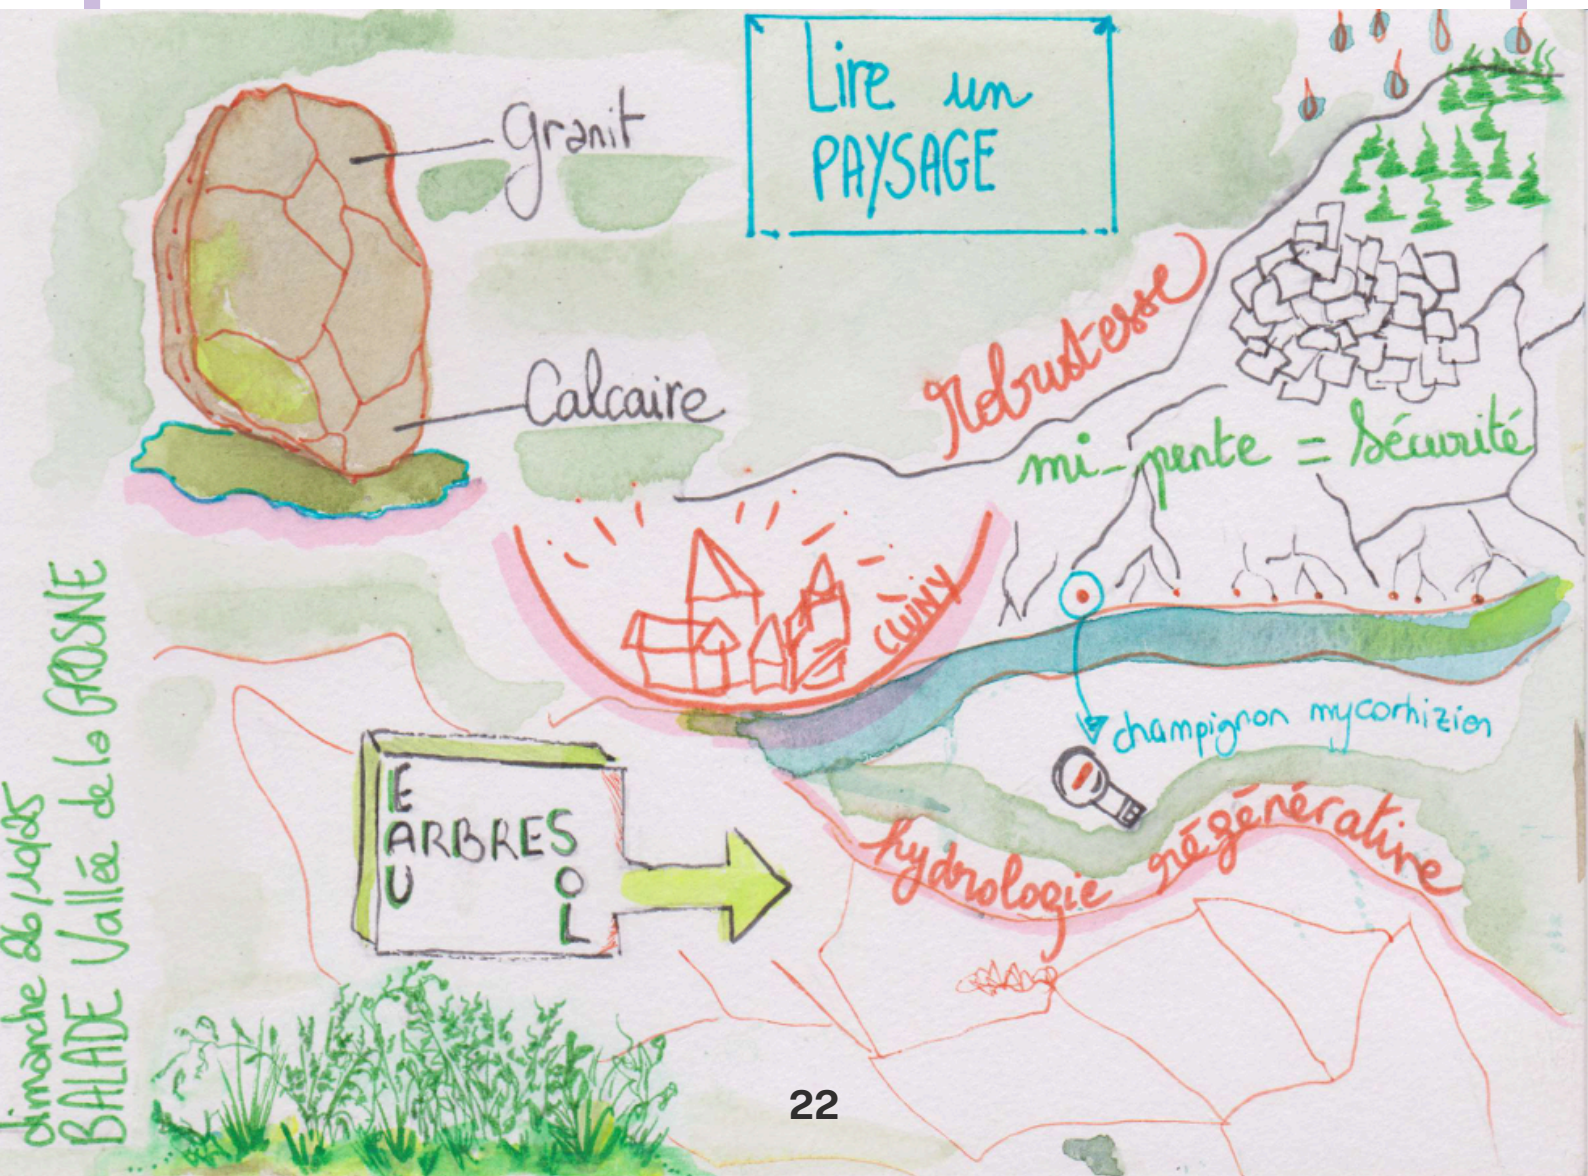 Lire un
PAYSAGE
Granit
Calcaire
Robustesse
mi-pente = Sécurité
CLUNY
champignon mycorhizien
hydrologie régénérative
EAU
ARBRES
SOL
dimanche 26/10/25
BALADE Vallée de la GROSNE
22